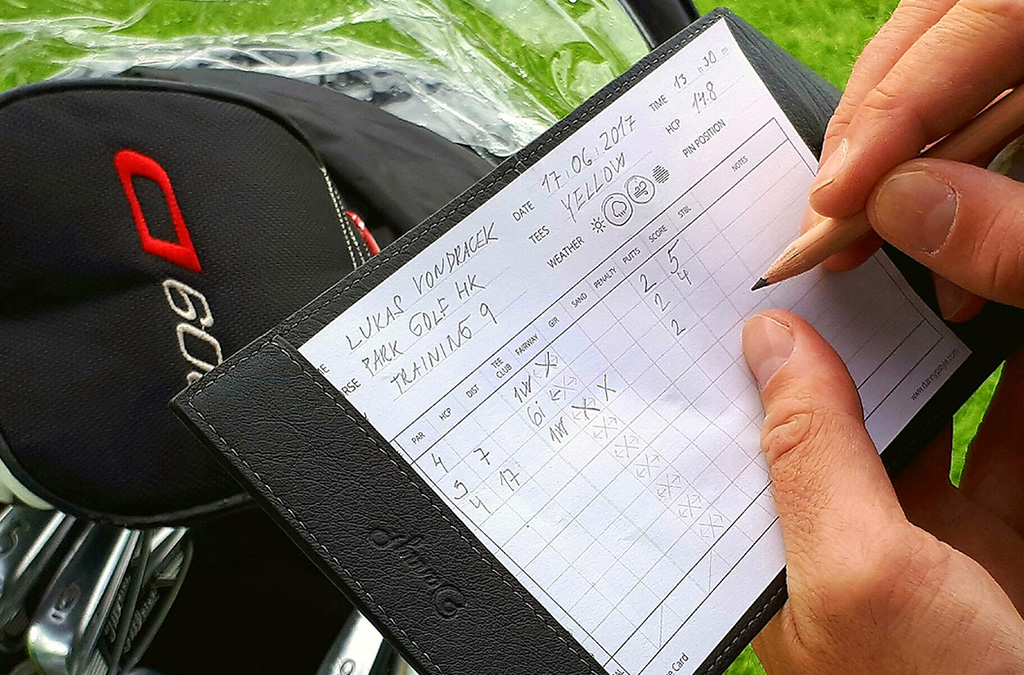 ME LUKAS VONDRACEK DATE 17.06.2017 TIME 13:30
RSE PARK GOLF HK TEES YELLOW HCP 14.8
TRAINING 9 WEATHER PIN POSITION
PAR HCP DIST TEE CLUB FAIRWAY GIR SAND PENALTY PUTTS SCORE STBL NOTES
4 7 1W X 2 5
3 17 6i 2 4
4 1W X X 2
e Card